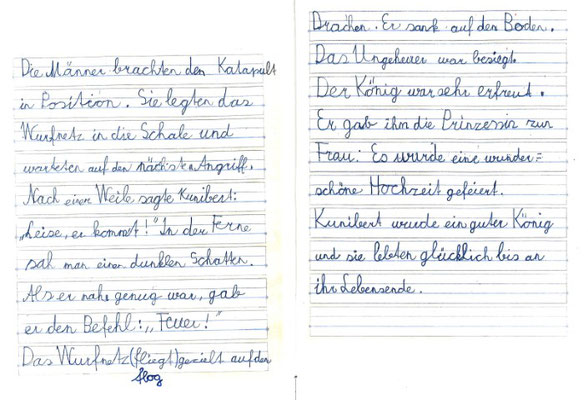 Die Männer brachten den Katapult
in Position. Sie legten das
Wurfnetz in die Schale und
warteten auf den nächsten Angriff.
Nach einer Weile sagte Kunibert:
„Leise, er kommt!" In der Ferne
sah man einen dunklen Schatten.
Als er nahe genug war, gab
er den Befehl: „Feuer!"
Das Wurfnetz (fliegt) gezielt auf den
flog
Drachen. Er sank auf den Boden.
Das Ungeheuer war besiegt.
Der König war sehr erfreut.
Er gab ihm die Prinzessin zur
Frau. Es wurde eine wunder=
schöne Hochzeit gefeiert.
Kunibert wurde ein guter König
und sie lebten glücklich bis an
ihr Lebensende.